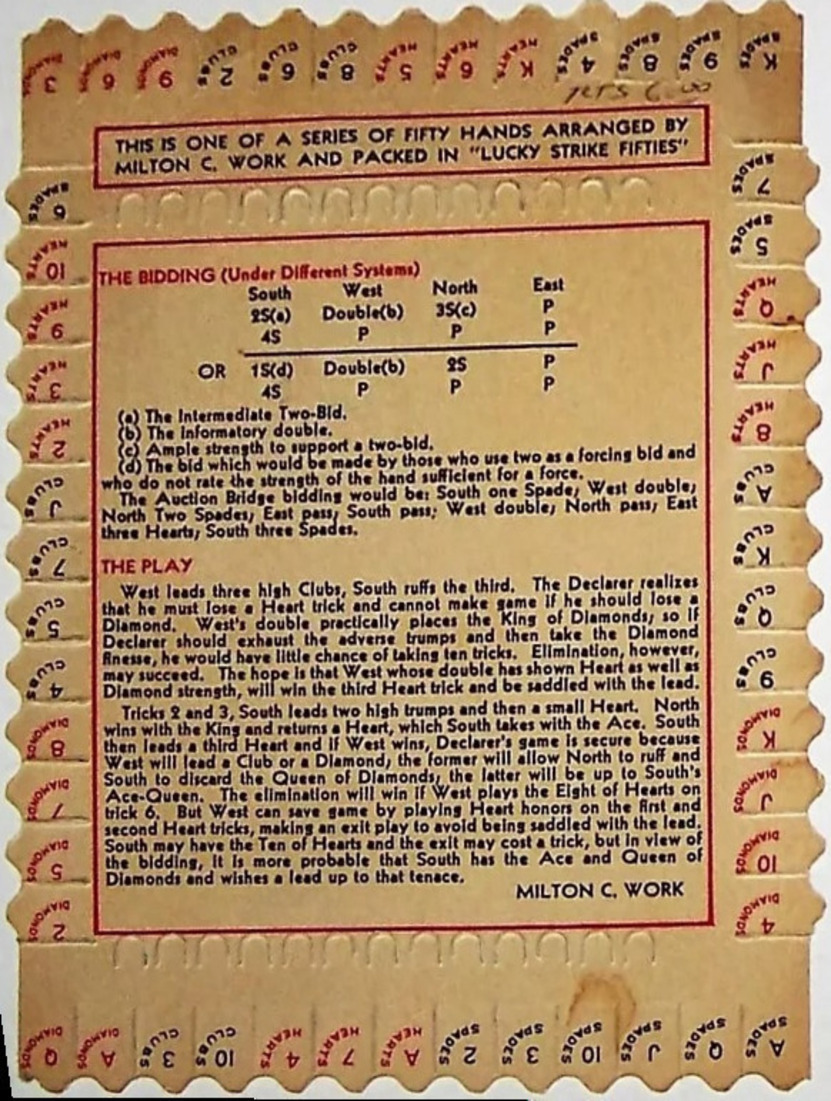 3 DIAMONDS 6 DIAMONDS 9 DIAMONDS 2 CLUBS 6 CLUBS 8 CLUBS 5 HEARTS 6 HEARTS K HEARTS 4 SPADES 8 SPADES 9 SPADES K SPADES
THIS IS ONE OF A SERIES OF FIFTY HANDS ARRANGED BY
MILTON C. WORK AND PACKED IN "LUCKY STRIKE FIFTIES"
6 SPADES
10 HEARTS
9 HEARTS
3 HEARTS
2 HEARTS
J CLUBS
7 CLUBS
5 CLUBS
4 CLUBS
8 DIAMONDS
7 DIAMONDS
5 DIAMONDS
2 DIAMONDS
THE BIDDING (Under Different Systems)
South West North East
2S(a) Double(b) 3S(c) P
4S P P P
OR 1S(d) Double(b) 2S P
4S P P P
(a) The Intermediate Two-Bid.
(b) The Informatory double.
(c) Ample strength to support a two-bid.
(d) The bid which would be made by those who use two as a forcing bid and
who do not rate the strength of the hand sufficient for a force.
The Auction Bridge bidding would be: South one Spade; West double;
North Two Spades; East pass; South pass; West double; North pass; East
three Hearts; South three Spades.
THE PLAY
West leads three high Clubs, South ruffs the third. The Declarer realizes
that he must lose a Heart trick and cannot make game if he should lose a
Diamond. West's double practically places the King of Diamonds; so if
Declarer should exhaust the adverse trumps and then take the Diamond
finesse, he would have little chance of taking ten tricks. Elimination, however,
may succeed. The hope is that West whose double has shown Heart as well as
Diamond strength, will win the third Heart trick and be saddled with the lead.
Tricks 2 and 3, South leads two high trumps and then a small Heart. North
wins with the King and returns a Heart, which South takes with the Ace. South
then leads a third Heart and if West wins, Declarer's game is secure because
West will lead a Club or a Diamond; the former will allow North to ruff and
South to discard the Queen of Diamonds; the latter will be up to South's
Ace-Queen. The elimination will win if West plays the Eight of Hearts on
trick 6. But West can save game by playing Heart honors on the first and
second Heart tricks, making an exit play to avoid being saddled with the lead.
South may have the Ten of Hearts and the exit may cost a trick, but in view of
the bidding, it is more probable that South has the Ace and Queen of
Diamonds and wishes a lead up to that tenace.
MILTON C. WORK
7 SPADES
5 SPADES
Q HEARTS
J HEARTS
8 HEARTS
A CLUBS
K CLUBS
Q CLUBS
9 CLUBS
K DIAMONDS
J DIAMONDS
10 DIAMONDS
4 DIAMONDS
Q DIAMONDS A DIAMONDS 3 CLUBS 10 CLUBS 4 HEARTS 7 HEARTS A HEARTS 2 SPADES 3 SPADES 10 SPADES J SPADES Q SPADES A SPADES